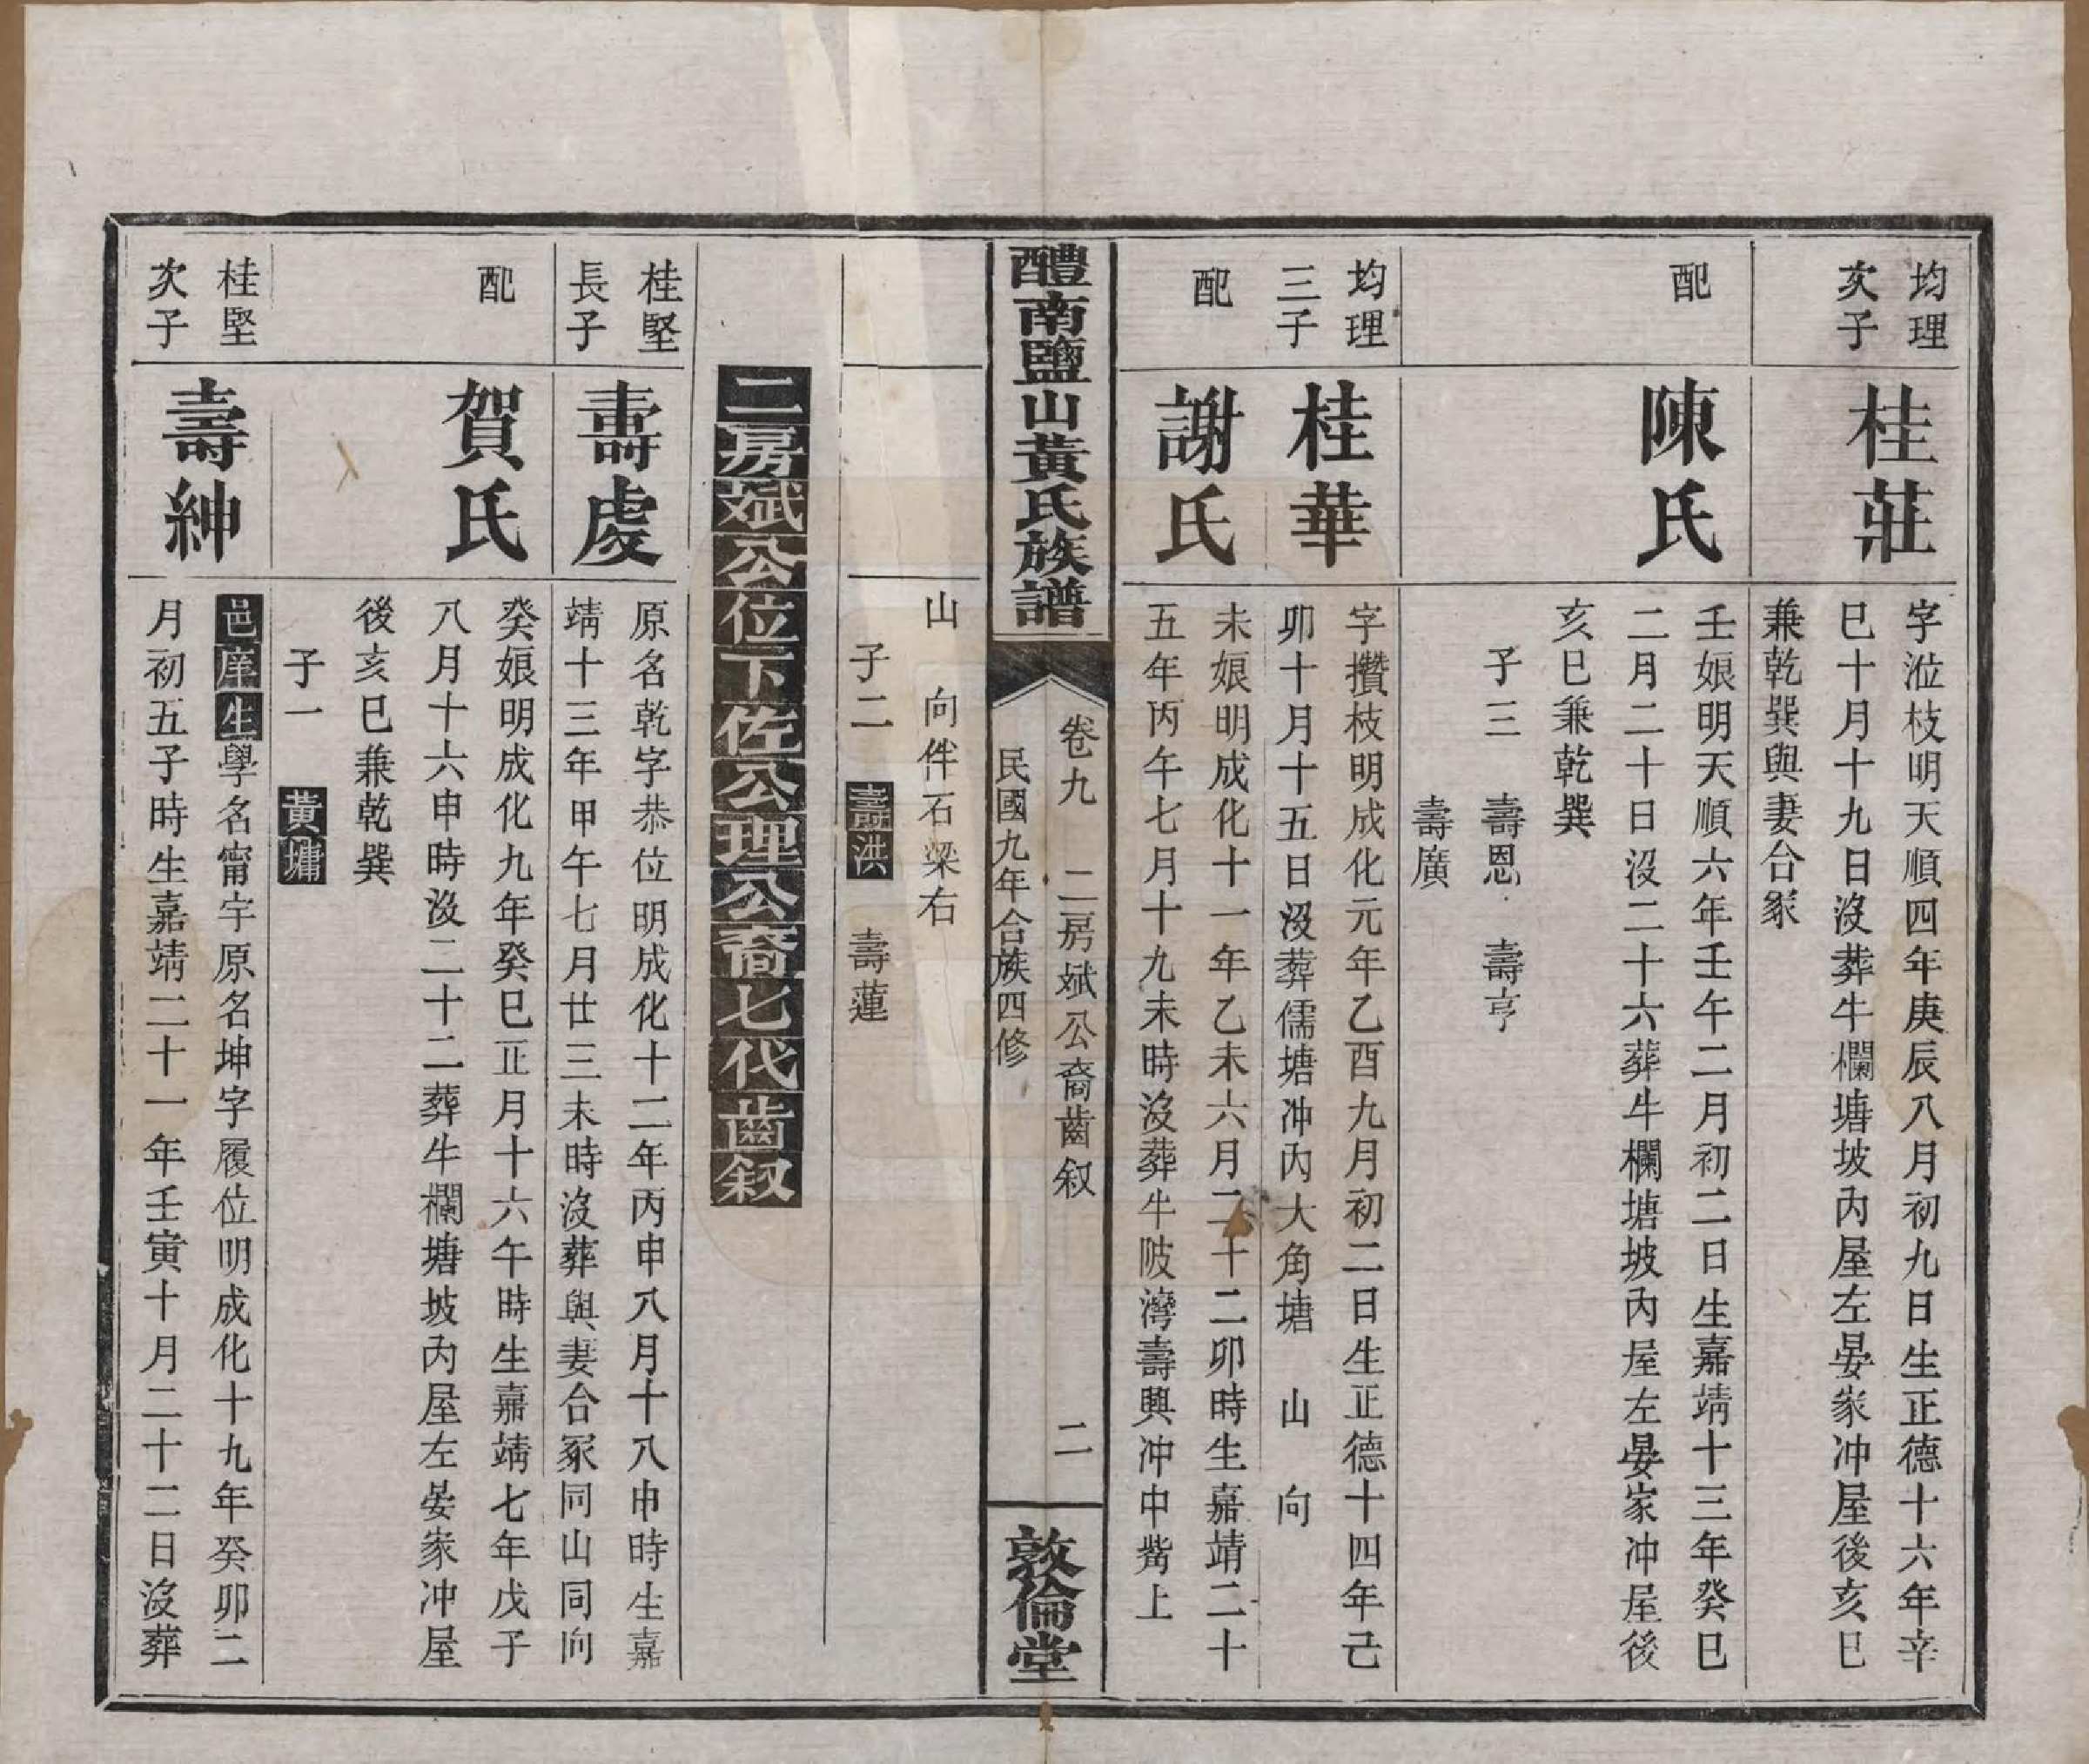 均理
次子
桂莊
字涖枝明天順四年庚辰八月初九日生正德十六年辛
巳十月十九日沒葬牛欄塘坡內屋左晏家冲屋後亥巳
兼乾巽與妻合冢
配
陳氏
壬娘明天順六年壬午二月初二日生嘉靖十三年癸巳
二月二十日沒二十六葬牛欄塘坡內屋左晏家冲屋後
亥巳兼乾巽
子三 壽恩 壽亨
壽廣
均理
三子
桂華
字攢枝明成化元年乙酉九月初二日生正德十四年己
卯十月十五日沒葬儒塘冲內大角塘 山 向
配
謝氏
未娘明成化十一年乙未六月二十二卯時生嘉靖二十
五年丙午七月十九未時沒葬牛陂灣壽興冲中嘴上
醴南鹽山黃氏族譜
卷九 二房斌公裔齒叙 二
民國九年合族四修
敦倫堂
山 向伴石梁右
子二 壽洪 壽蓮
二房斌公位下佐公理公裔七代齒叙
桂堅
長子
壽處
原名乾字恭位明成化十二年丙申八月十八申時生嘉
靖十三年甲午七月廿三未時沒葬與妻合冢同山同向
配
賀氏
癸娘明成化九年癸巳正月十六午時生嘉靖七年戊子
八月十六申時沒二十二葬牛欄塘坡內屋左晏家冲屋
後亥巳兼乾巽
子一 黃墉
桂堅
次子
壽紳
邑庠生學名甯宇原名坤字履位明成化十九年癸卯二
月初五子時生嘉靖二十一年壬寅十月二十二日沒葬